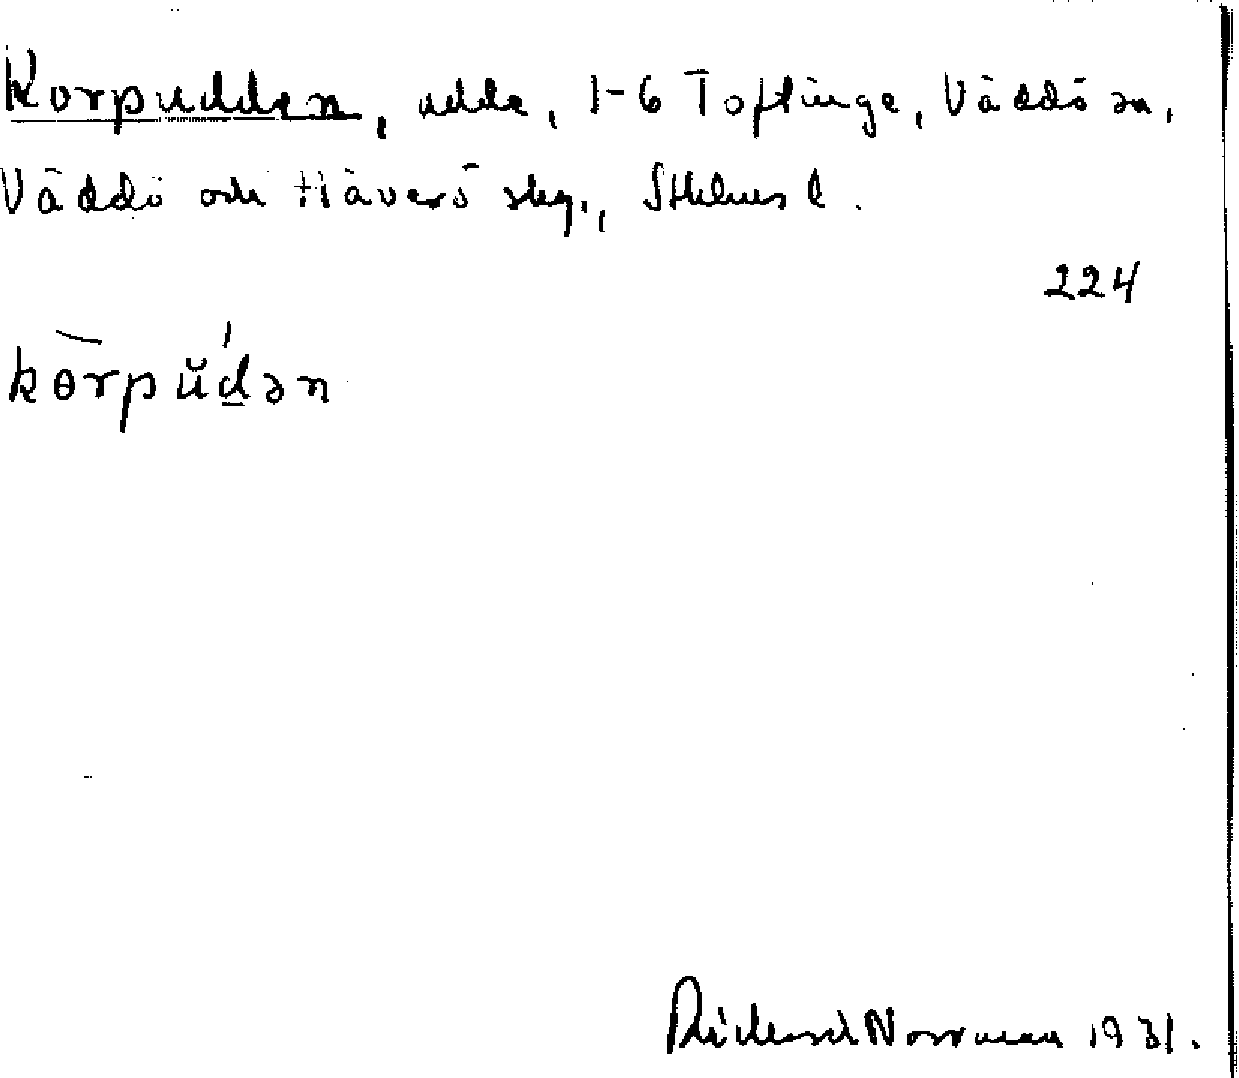 Korpudden, udde, 1-6 Toftinge, Väddö sn,
Väddö och Häverö skg., Sthlms l.
224
kɵ̄rpŭd̲ən
Rickard Norrman 1931.